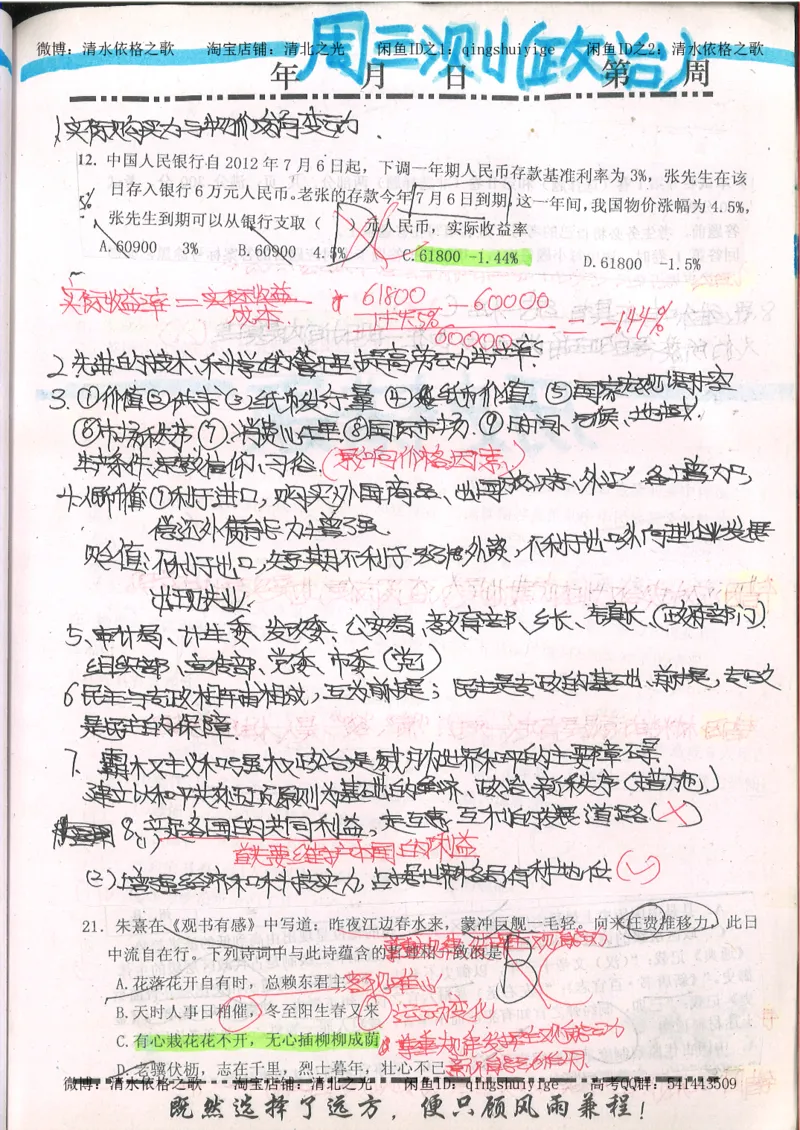 微博：清水依格之歌 淘宝店铺：清北之光 闲鱼ID之1：qingshuiyige 闲鱼ID之2：清水依格之歌
周三测(政治)
年 月 日 第 周
1.实际购买力与物价发展变动
12. 中国人民银行自 2012 年 7 月 6 日起，下调一年期人民币存款基准利率为 3%，张先生在该
日存入银行 6 万元人民币。老张的存款今年 7 月 6 日到期，这一年间，我国物价涨幅为 4.5%，
张先生到期可以从银行支取（ ）元人民币，实际收益率
A.60900 3% B.60900 4.5% C.61800 -1.44% D.61800 -1.5%
实际收益率 = 实际收益
成本
61800
1+4.5%
- 60000
60000
= -1.44%
2.先进的技术、科学的管理提高劳动生产率
3. ①价值 ②供求 ③纸币发行量 ④纸币价值 ⑤国家宏观调控
⑥市场秩序 ⑦消费心理 ⑧国际市场 ⑨时间、气候、地域、
生产条件、宗教信仰、习俗 (影响价格因素)
4.升值：①利于进口，购买外国商品、出国旅游、外汇
偿还外债能力增强
贬值：不利于出口，不利于 外资，不利于出口外向型企业发展
出现失业
5、审计局、计生委、发改委、公安局、教育部、乡长、镇长(政府部门)
组织部、宣传部、党委、市委(党)
6 民主与专政相辅相成，互为前提；民主是专政的基础、前提，专政
是民主的保障
7、霸权主义和强权政治是威胁世界和平的主要障碍
建立以和平共处五项原则为基础的经济、政治新秩序
8、(1)立足各国的共同利益，走互惠、互利的发展道路(×)
首先要维护本国的利益
(2)增强经济和科技实力，占据世界格局有利地位 (√)
21. 朱熹在《观书有感》中写道：昨夜江边春水来，蒙冲巨舰一毛轻。向来枉费推移力，此日
中流自在行。下列诗词中与此诗蕴含的哲理相一致的是
A. 花落花开自有时，总赖东君主 客观唯心
B. 天时人事日相催，冬至阳生春又来 运动变化
C. 有心栽花花不开，无心插柳柳成荫 尊重规律发挥主观能动
D. 老骥伏枥，志在千里，烈士暮年，壮心不已 意识能动作用
微博：清水依格之歌 淘宝店铺：清北之光 闲鱼ID之1：qingshuiyige 高考QQ群：541443509
既然选择了远方，便只顾风雨兼程！